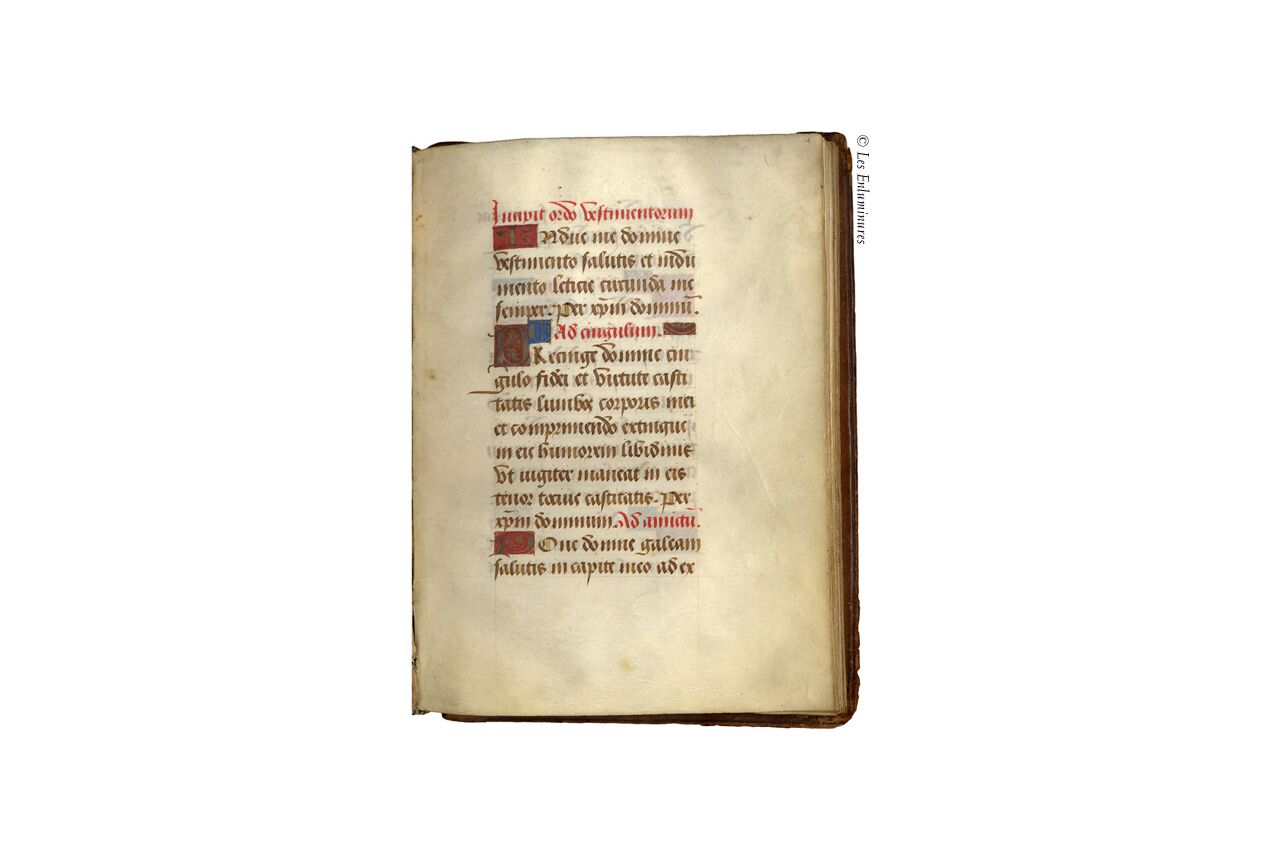 Incipit ordo vestimentorum
INdue me domine
vestimento salutis et indu
mento leticie circunda me
semper. Per xpm dominu.
Ad cingulum.
PRecinge domine cin
gulo fidei et virtute casti
tatis lumbos corporis mei
et comprimendo extingue
in eis humorem libidinis
Vt iugiter maneat in eis
tenor tocius castitatis. Per
xpm dominum. Ad amictu.
POne domine galeam
salutis in capite meo ad ex
© Les Enluminures